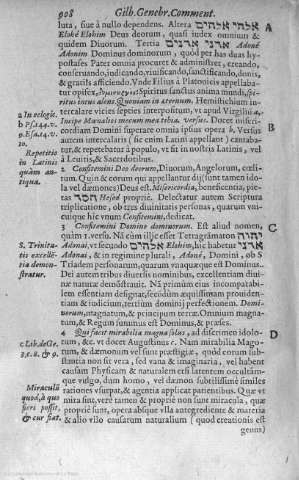 908 Gilb. Genebr. Comment.
luta, siue à nullo dependens. Altera אלהי אלהים
Elohè Elohim Deus deorum, quasi iudex omnium &
quidem Diuorum. Tertia אדני אדנים Adonè
Adonim Dominus dominorum, quòd per has duas hy-
postases Pater omnia procuret & administret, creando,
conseruando, iudicando, viuificando, sanctificando, donis,
& gratiis afficiendo. Vnde Filius à Platonicis appellaba-
tur opifex, Spiritus sanctus anima mundi, spi-
ritus intus alens. Quoniam in aeternum. Hemistichium in-
tercalare vicies septies interpositum, vt apud Virgilium a.
Incipe Maenalios mecum mea tibia versus. Docet miseri-
cordiam Domini superare omnia ipsius opera b. Versus
autem intercalaris (sic enim Latini appellant) cantaba-
tur, & repetebatur à populo, vt fit in nostris Latinis, vel
à Leuitis, & Sacerdotibus.
2 Confitemini Deo deorum, Diuorum, Angelorum,
tum. Quin & eorum qui appellantur dij (sunt tamen ido-
la vel daemones) Deus est. Misericordia, beneficentia, pie-
tas חסד Hesed propriè. Delectatur autem Scriptura
triplicatione, ob tres diuinitatis personas, quarum vni-
cuique hîc vnum Confitemini, dedicat.
3 Confitemini Domino dominorum. Est aliud nomen,
quàm 1. versu. Nã cùm illîc esset Tetragrãmaton יהוה
Adonai, vt secundo אלהים Elohim, hîc habetur אדני
Adonai, & in regimine plurali, Adonè, Domini, ob S
Triadem personarum, quarum vnaquaeque est Dominus.
Dei autem tribus diuersis nominibus, excellentiam diui-
nae naturae demõstrauit. Nã primùm eius incomparabi-
lem essentiam designat, secundum aequissimam prouiden-
tiam & iudicium, tertium dominij perfectionem. Domi-
norum, magnatum, & principum terrae. Omnium magna-
tum, & Regum summus est Dominus, & praeses.
4 Qui facit mirabilia magna solus, ad discrimen idolo-
rum, &c. vt docet Augustinus c. Nam mirabilia Mago-
rum, & daemonum vel sunt praestigiae, quòd eorum sub-
stantia non sit vera, sed vana & imaginaria, vel habent
causam Physicam & naturalem etsi latentem occultãm-
que vulgo, dum homo, vel daemon subtilissimè similes
rationes vsurpat, & agentia applicat patientibus. Quae vt
mira sint, verè tamen & propriè non sunt miracula, quae
propriè sunt, opera absque vlla antegrediente & materia
& alio vllo causarum naturalium (quod creationis est
genus)
A
B
C
D
a In eclogis.
b Psa. 144. v.
9. Psa. 14. v.
10.
Repetitio
in Latinis
quàm an-
tiqua.
S. Trinita-
tis excellẽ-
tia demon-
stratur.
c Lib. de Gr.
3. c. 8. & 9.
Miraculũ
quod, à quo
fieri possit,
& cur fiat.